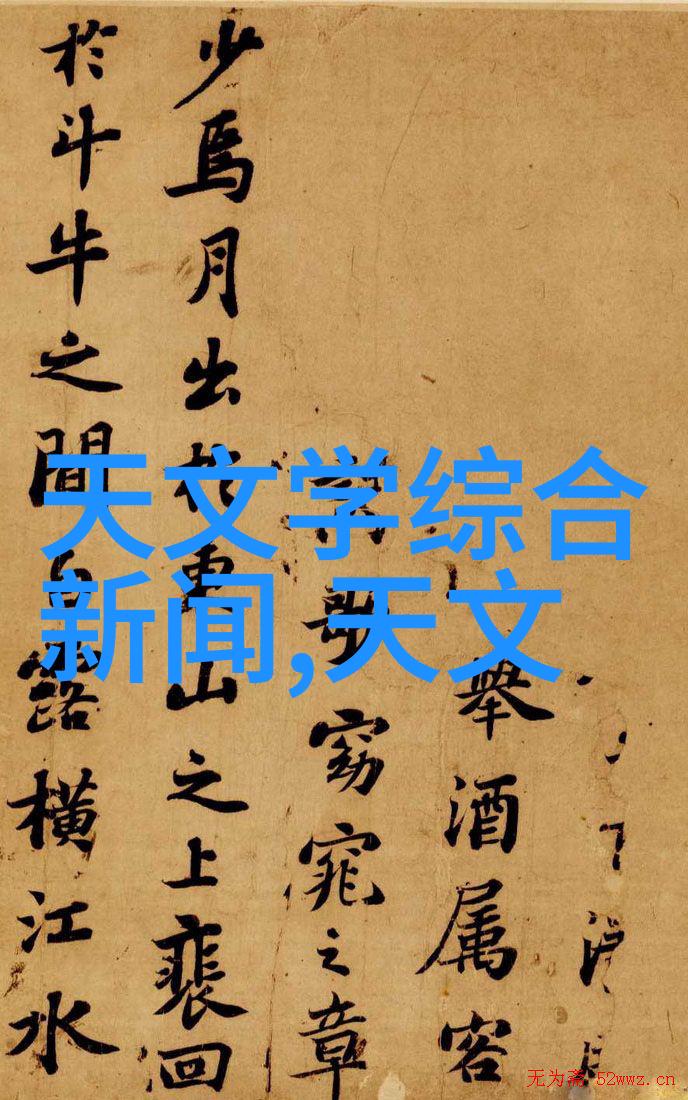 舉酒属客
歌窈窕之章
少焉月出於東山之上裴回
於斗牛之間白露橫江水
天文学综合
新闻,天文
无为斋 52wwz.cn